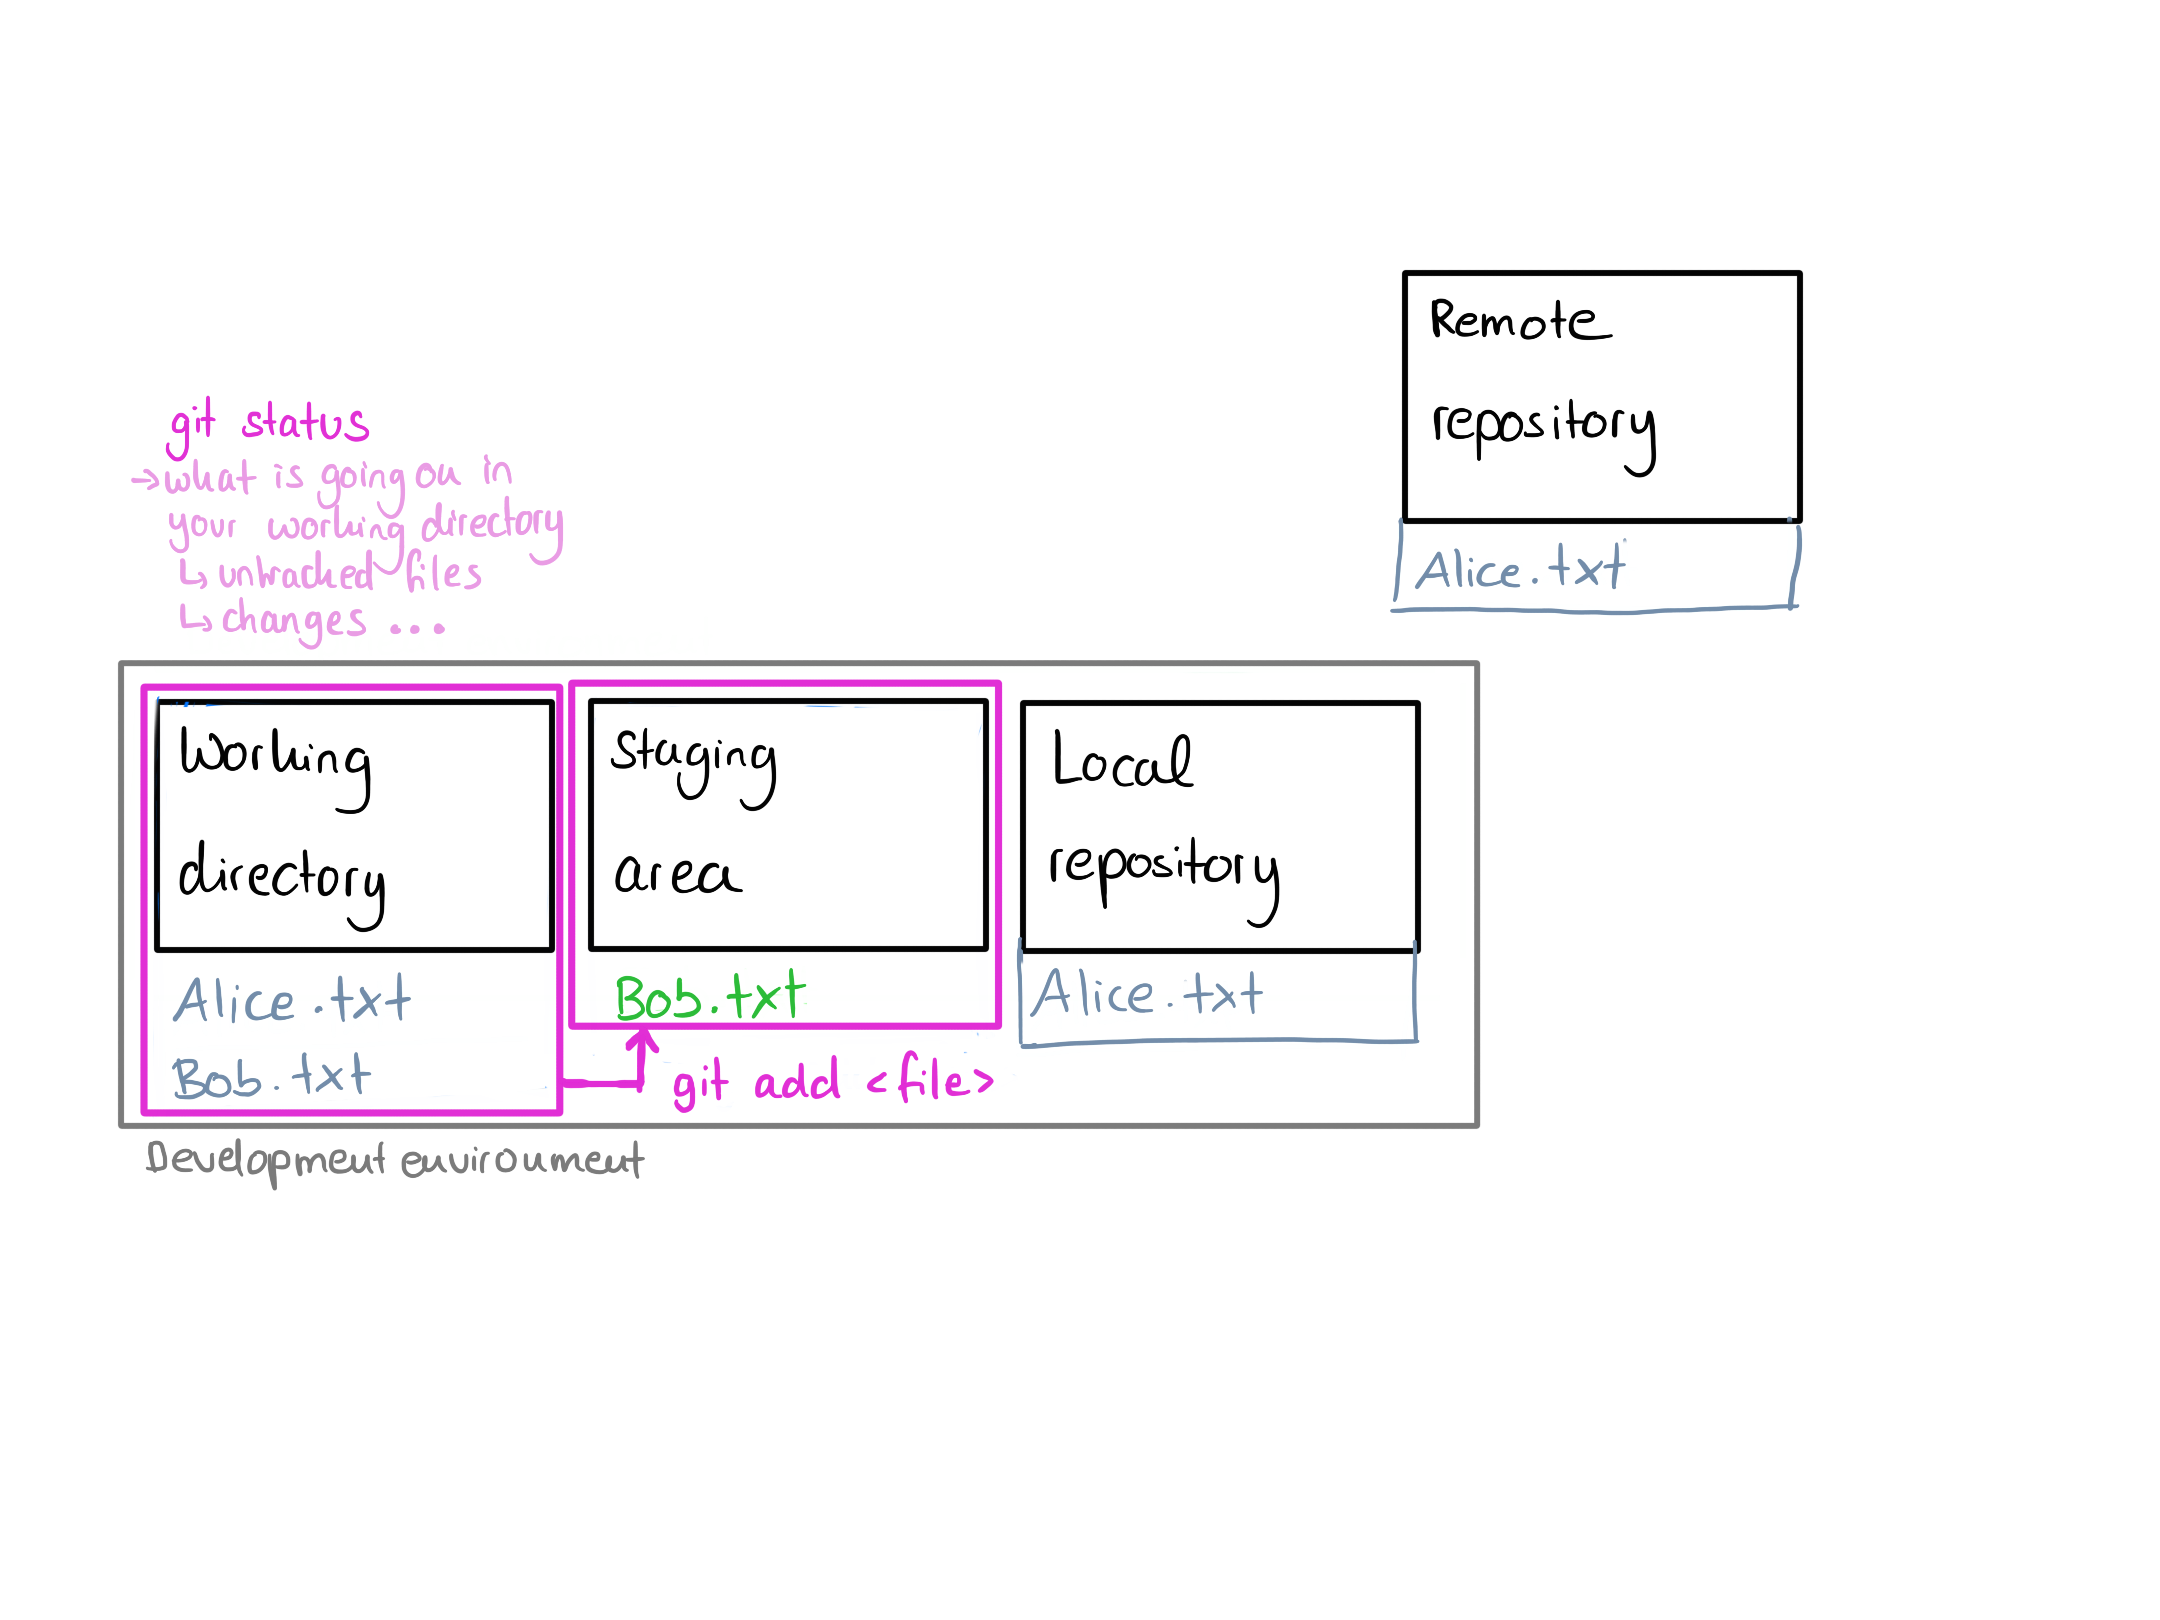 Remote
repository
Alice.txt
git status
→ what is going on in
your working directory
↳ untracked files
↳ changes ...
Working
directory
Alice.txt
Bob.txt
Staging
area
Bob.txt
git add <file>
Local
repository
Alice.txt
Development environment